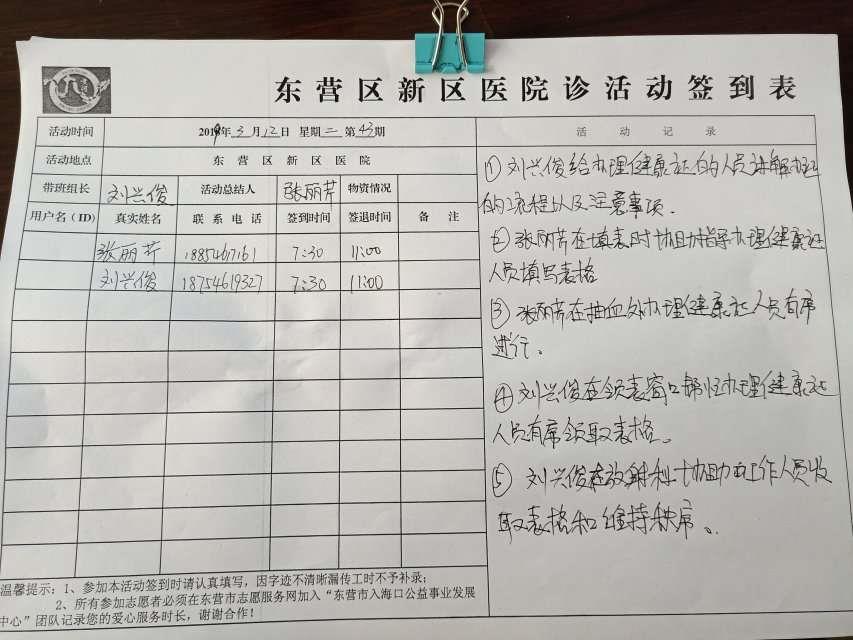 东营区新区医院诊活动签到表
活动时间 2019年3月12日 星期二 第43期
活动地点 东营区新区医院
带班组长 刘兴俊 活动总结人 张丽芹 物资情况
用户名(ID) 真实姓名 联系电话 签到时间 签退时间 备注
张丽芹 1885467161 7:30 11:00
刘兴俊 18754619327 7:30 11:00
温馨提示:1、参加本活动签到时请认真填写,因字迹不清晰漏传工时不予补录;
2、所有参加志愿者必须在东营市志愿服务网加入“东营市入海口公益事业发展
中心”团队记录您的爱心服务时长,谢谢合作!
活动记录
①刘兴俊给办理健康证的人员讲解办证
的流程以及注意事项.
②张丽芹在填表时协助指导办理健康证
人员填写表格
③张丽芹在抽血处办理健康证人员有序
进行.
④刘兴俊在领表窗口帮忙办理健康证
人员有序领取表格。
⑤刘兴俊在放射科协助工作人员收
取表格和维持秩序。